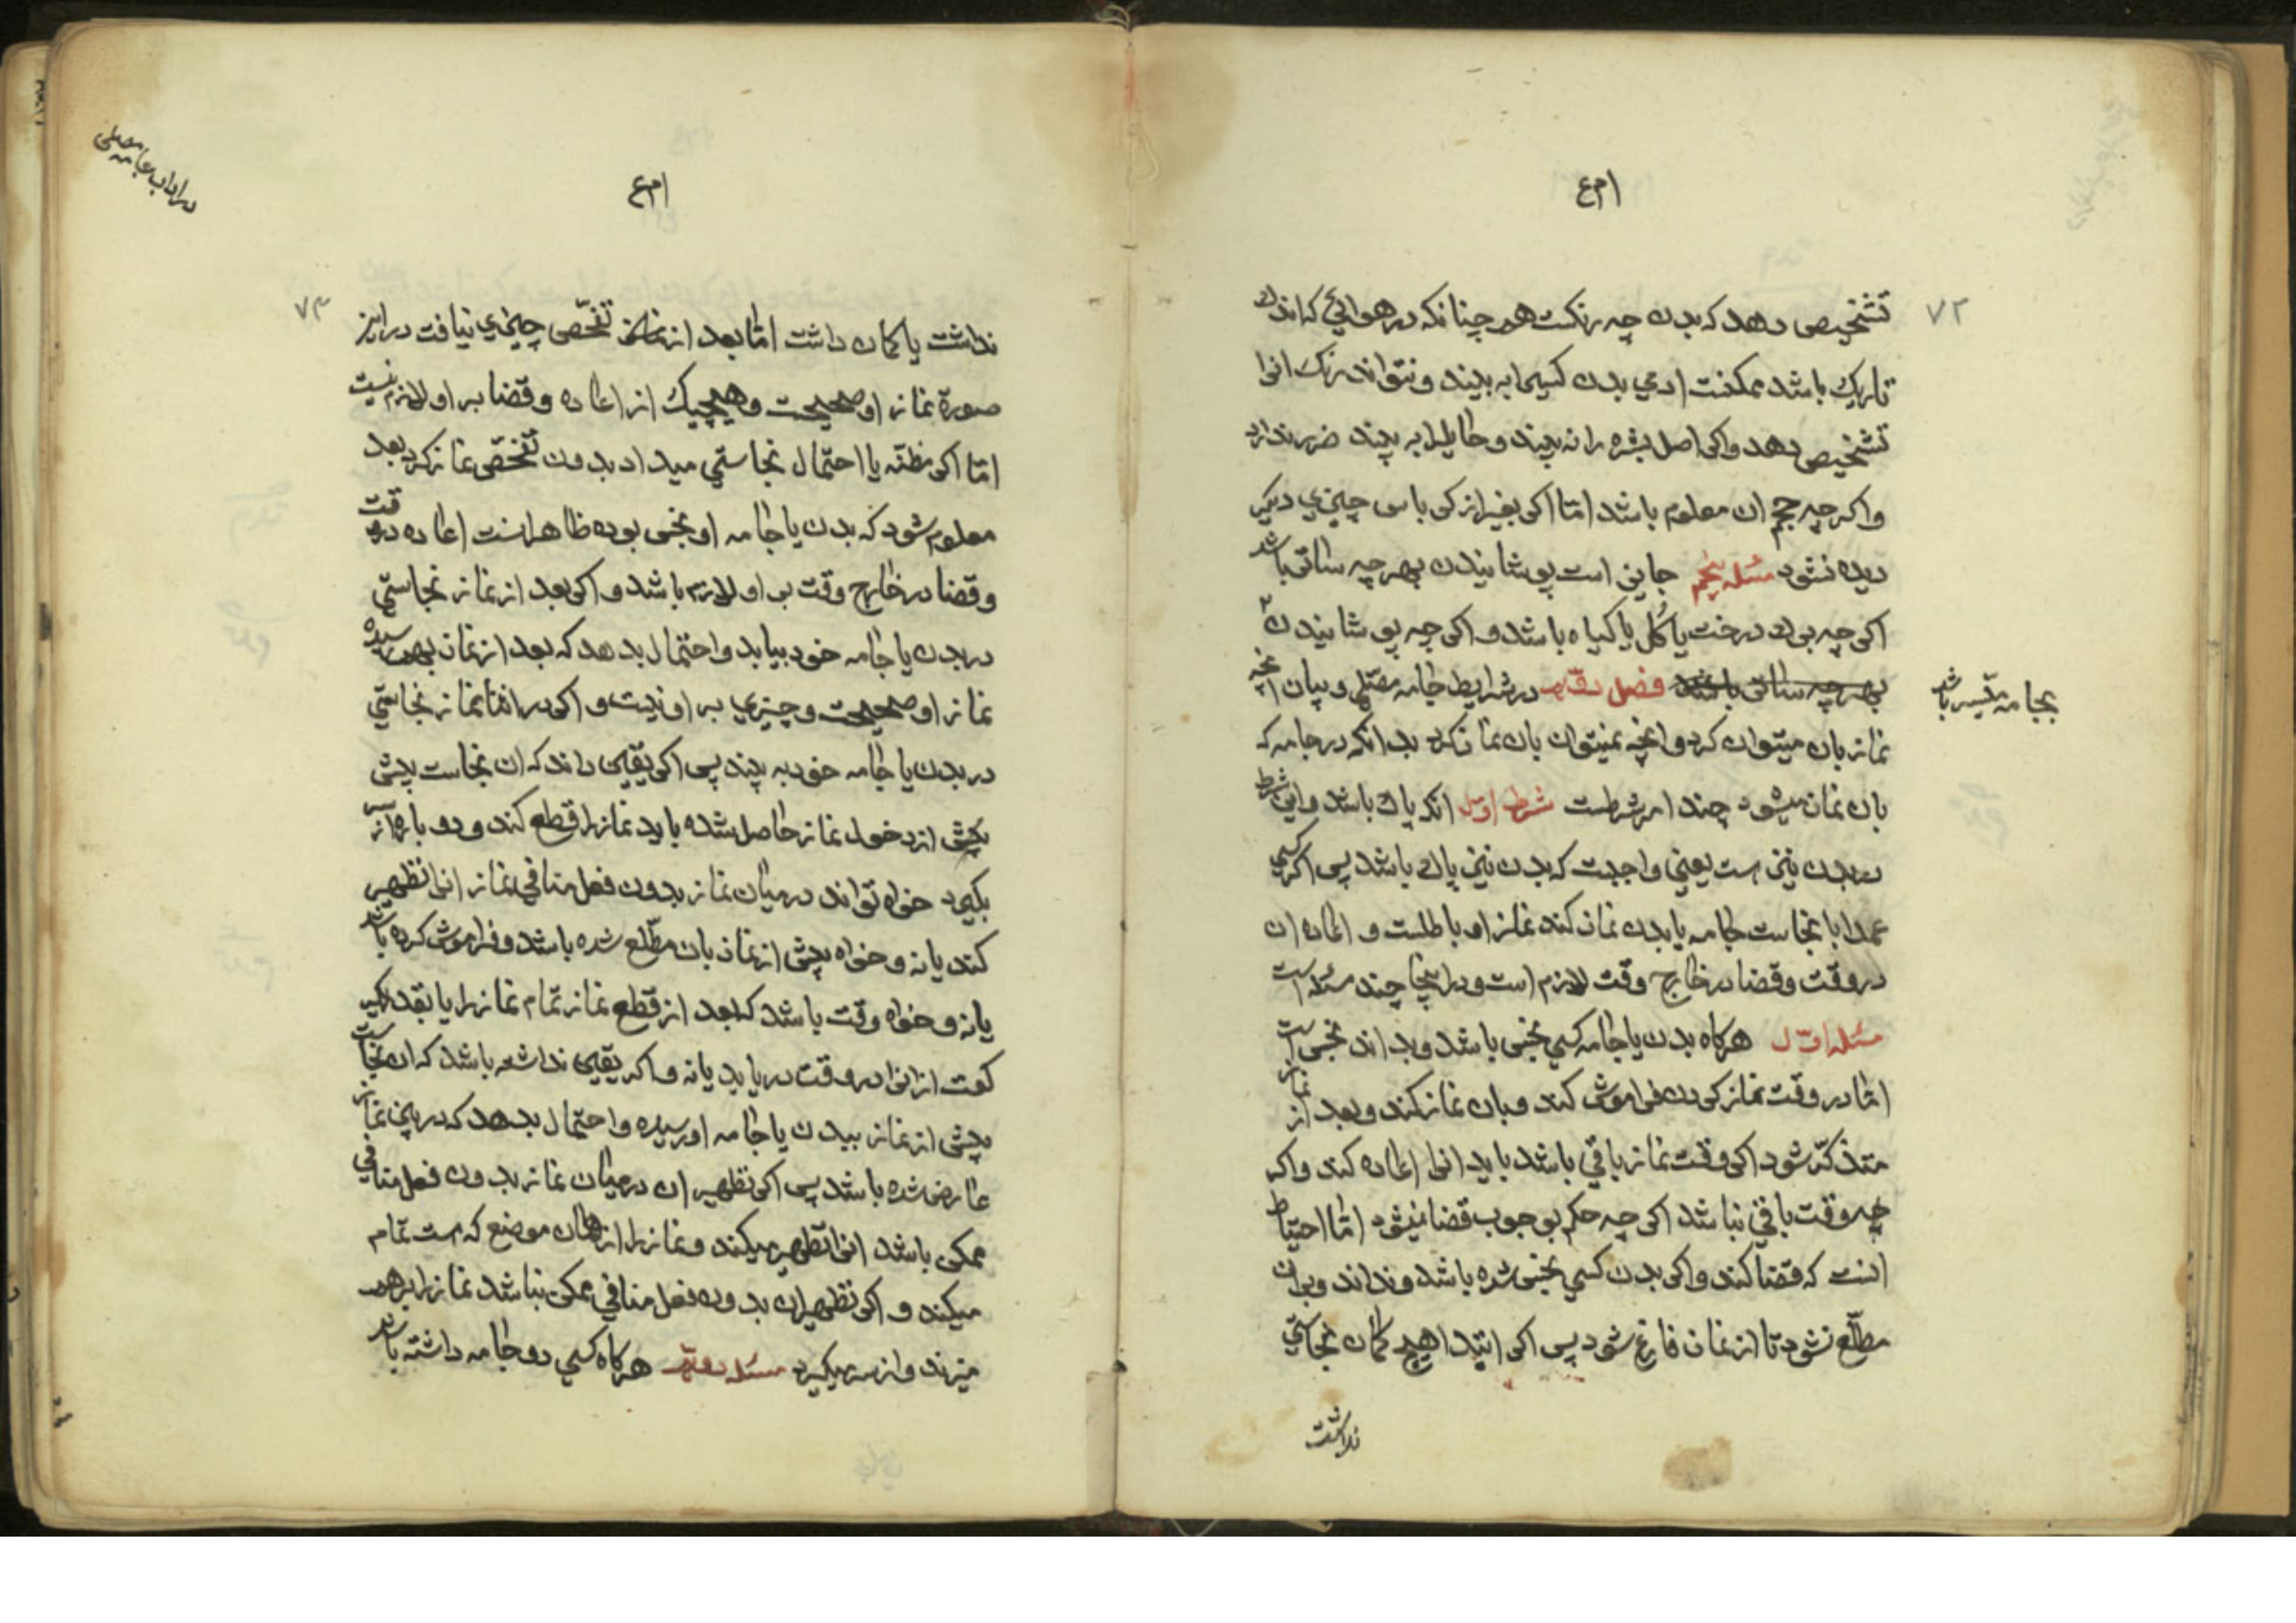 ۷۲
تشخیص دهد که بدن چه رنکست همچنانکه در هوائی که اندک
تاریک باشد ممکنست ادمی بدن کسیرا به بیند و نتواند رنک انرا
تشخیص دهد واکر اصل بشره را نه بیند و حایلرا به بیند ضرر ندارد
واکر چه حجم ان معلوم باشد امّا اکر بغیر از کرباس چیزی دیکر
دیده نشود مسئله پنجم جایز است پوشانیدن بهر چه ساتر باشد
اکر چه برک درخت یا کُل یا کیاه باشد و اکر چه پوشانیدن
بهر چه ساتر باشد فصل دویّم در شرایط جامه مصلّی و بیان انچه
بجامه میّسر باشد
نماز بان میتوان کرد وانچه نمیتوان بان نماز کرد بدانکه در جامه که
بان نماز میشود چند امر شرطست شرط اوّل انکه پاک باشد واین شرط
در بدن نیز هست یعنی واجبست که بدن نیز پاک باشد پس اکر کسی
عمدا با نجاست جامه یا بدن نماز کند نماز او باطلست و اعاده ان
در وقت وقضا در خارج وقت لازم است ودر اینجا چند مسئله است
مسئله اوّل هرکاه بدن یا جامه کسی نجس باشد وبداند نجس است
امّا در وقت نماز کردن فراموش کند وبان نماز کند وبعد از نماز
متذکّر شود اکر وقت نماز باقی باشد باید انرا اعاده کند واکر
وقت باقی نباشد اکر چه حکم بوجوب قضا نمیشود امّا احتیاط
انست که قضا کند واکر بدن کسی نجس شده باشد ونداند وبران
مطّلع نشود تا از نماز فارغ شود پس اکر ابتدا هیچ کمان نجاستی
نداشت
در اداب جامه مصلی
۷۳
نداشت یا کمان داشت امّا بعد از تفحّص چیزی نیافت در این
صورة نماز او صحیحست وهیچیک از اعاده وقضا بر او لازم نیست
امّا اکر مظنّه یا احتمال نجاستی میداد بدون تفحّص نماز کرد بعد
معلوم شود که بدن یا جامه او نجس بوده ظاهر انست اعاده در وقت
وقضا در خارج وقت بر او لازم باشد واکر بعد از نماز نجاستی
در بدن یا جامه خود بیابد واحتمال بدهد که بعد از نماز بهم رسیده
نماز او صحیحست وچیزی بر او نیست واکر در اثنا نماز نجاستی
در بدن یا جامه خود به بیند پس اکر یقین داند که ان نجاست پیش
پیش از دخول نماز حاصل شده باید نماز را قطع کند ودوباره از سر
بکیرد خواه تواند در میان نماز بدون فعل منافی نماز انرا تطهیر
کند یا نه وخواه پیش از نماز بان مطّلع شده باشد وفراموش کرده باشد
یا نه وخواه وقت باشد که بعد از قطع نماز تمام نماز را یا بقدر یک
رکعت از انرا در وقت دریابد یا نه واکر یقین نداشته باشد که ان نجاست
پیش از نماز ببدن یا جامه او رسیده واحتمال بدهد که در بین نماز
عارض شده باشد پس اکر تطهیر ان در میان نماز بدون فعل منافی
ممکن باشد انرا تطهیر میکند ونماز را از همان موضع که هست تمام
میکند و اکر تطهیر ان بدون فعل منافی ممکن نباشد نماز را بر هم
میزند واز سر میکیرد مسئله دویّم هرکاه کسی دو جامه داشته باشد